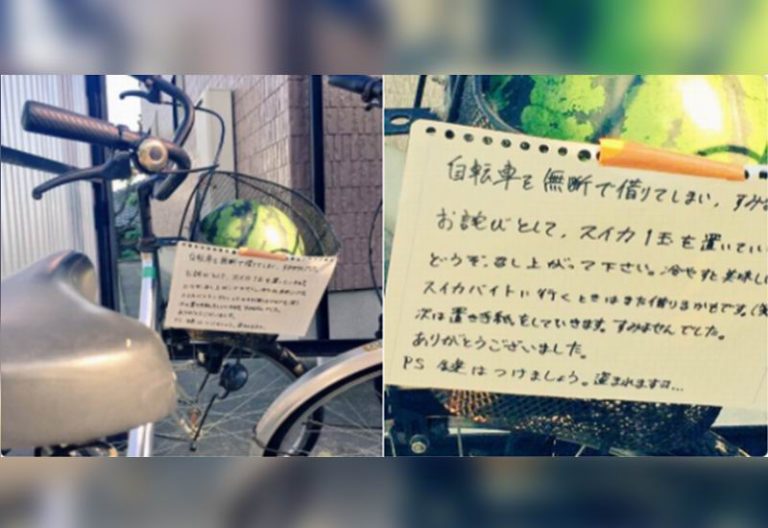 自転車を無断で借りてしまい、すみま
お詫びとして、スイカ1玉を置いてい
どうぞ、召し上がって下さい。冷やすと美味し
スイカバイトに行くときはまた借りるかもです。(笑
次は置き手紙をしていきます。すみませんでした。
ありがとうございました。
PS 鍵はつけましょう。盗まれますヨ...